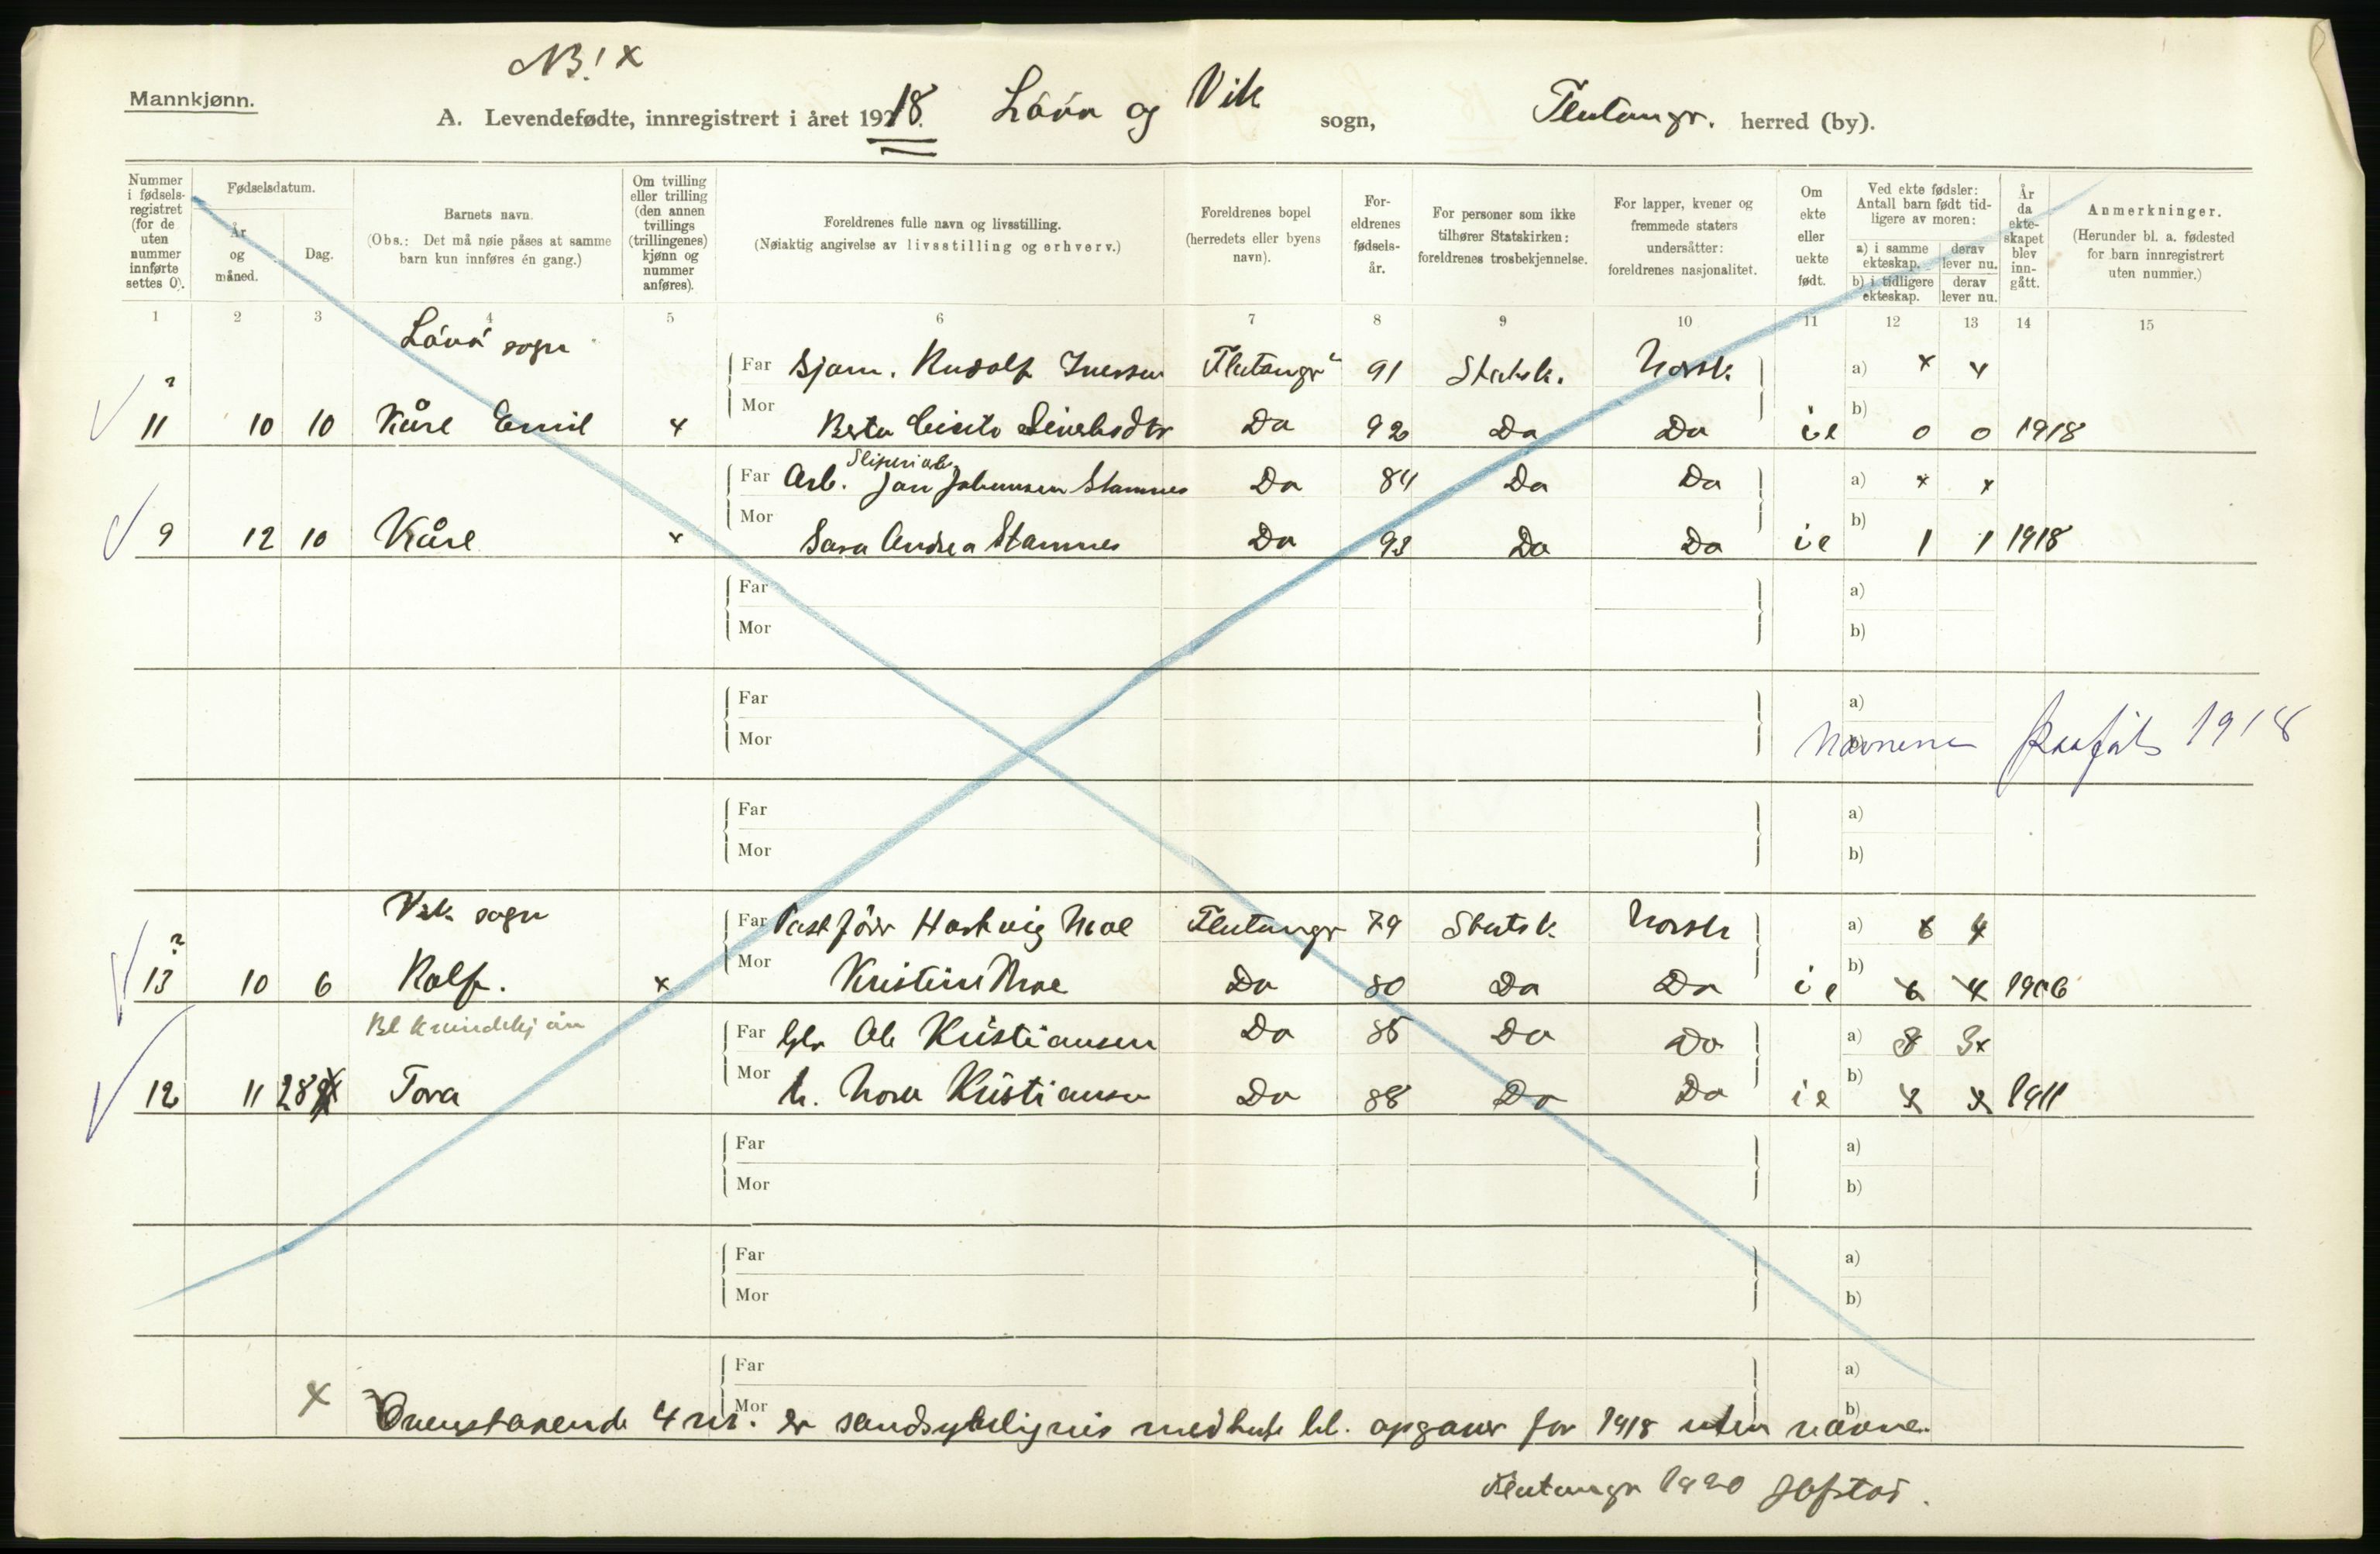 NB! x
Mannkjønn.
A. Levendefødte, innregistrert i året 1918. Låva og Vik sogn, Flatangr. herred (by).
Nummer i fødselsregistret (for de uten nummer innførte settes 0).
Fødselsdatum.
År og måned.
Dag.
Barnets navn.
(Obs.: Det må nøie påses at samme barn kun innføres én gang.)
Om tvilling eller trilling (den annen tvillings (trillingenes) kjønn og nummer anføres).
Foreldrenes fulle navn og livsstilling.
(Nøiaktig angivelse av livsstilling og erhverv.)
Foreldrenes bopel (herredets eller byens navn).
Foreldrenes fødselsår.
For personer som ikke tilhører Statskirken: foreldrenes trosbekjennelse.
For lapper, kvener og fremmede staters undersåtter: foreldrenes nasjonalitet.
Om ekte eller uekte født.
Ved ekte fødsler: Antall barn født tidligere av moren:
a) i samme ekteskap. derav lever nu.
b) i tidligere ekteskap. derav lever nu.
År da ekteskapet blev inngått.
Anmerkninger.
(Herunder bl. a. fødested for barn innregistrert uten nummer.)
1 2 3 4 5 6 7 8 9 10 11 12 13 14 15
Låvå sogn
Far Bjarn. Rudolf Iversen Flatangr 91 Statsk. Norsk a) x x
11 10 10 Kåre Emil x Mor Berta Da 92 Da Da ie b) 0 0 1918
Far Arb. Jan Johansen Stamnes Da 84 Da Da a) x x
9 12 10 Kåre x Mor Sara Andrea Stamnes Da 93 Da Da ie b) 1 1 1918
Far a)
Mor b)
Far a)
Mor b) Navnene 1918
Far a)
Mor b)
Vik sogn
Far Hartvig Moe Flatangr 79 Statsk Norsk a) 6 4
13 10 6 Rolf. x Mor Kristine Moe Da 80 Da Da ie b) 6 4 1906
Bl kvindekjøn
Far Ole Kristiansen Da 85 Da Da a) 3 3x
12 11 28 Tora Mor h. Nora Kristiansen Da 88 Da Da ie b) 1911
Far a)
Mor b)
Far a)
Mor b)
Far a)
Mor b)
x Ovenstaaende 4 nr. er sandsynligvis medtat bl. opgaver for 1918 uten navne.
Flatangr 1920 Hofstad.